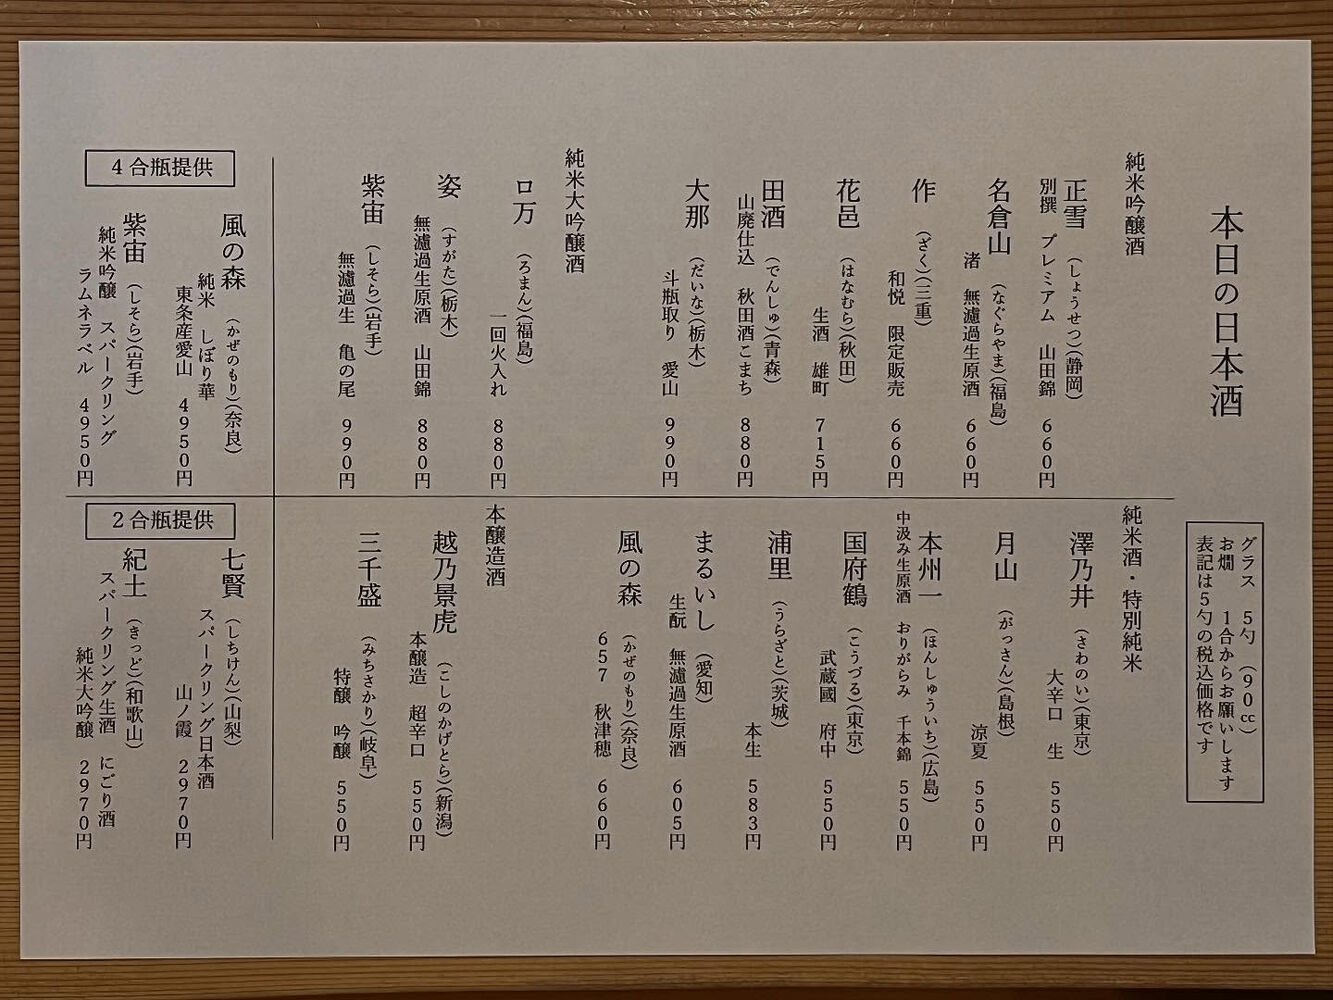 本日の日本酒
グラス 5勺 (90cc)
お燗 1合からお願いします
表記は5勺の税込価格です
純米吟醸酒
正雪 (しょうせつ)(静岡)
別撰 プレミアム 山田錦 660円
名倉山 (なぐらやま)(福島)
渚 無濾過生原酒 660円
作 (ざく)(三重)
和悦 限定販売 660円
花邑 (はなむら)(秋田)
生酒 雄町 715円
田酒 (でんしゅ)(青森)
山廃仕込 秋田酒こまち 880円
大那 (だいな)(栃木)
斗瓶取り 愛山 990円
純米大吟醸酒
ロ万 (ろまん)(福島)
一回火入れ 880円
姿 (すがた)(栃木)
無濾過生原酒 山田錦 880円
紫宙 (しそら)(岩手)
無濾過生 亀の尾 990円
純米酒・特別純米
澤乃井 (さわのい)(東京)
大辛口 生 550円
月山 (がっさん)(島根)
涼夏 550円
本州一 (ほんしゅういち)(広島)
中汲み生原酒 おりがらみ 千本錦 550円
国府鶴 (こうづる)(東京)
武蔵國 府中 550円
浦里 (うらざと)(茨城)
本生 583円
まるいし (愛知)
生酛 無濾過生原酒 605円
風の森 (かぜのもり)(奈良)
657 秋津穂 660円
本醸造酒
越乃景虎 (こしのかげとら)(新潟)
本醸造 超辛口 550円
三千盛 (みちさかり)(岐阜)
特醸 吟醸 550円
4合瓶提供
風の森 (かぜのもり)(奈良)
純米 しぼり華
東条産愛山 4950円
紫宙 (しそら)(岩手)
純米吟醸 スパークリング
ラムネラベル 4950円
2合瓶提供
七賢 (しちけん)(山梨)
スパークリング日本酒
山ノ霞 2970円
紀土 (きっど)(和歌山)
スパークリング生酒 にごり酒
純米大吟醸 2970円